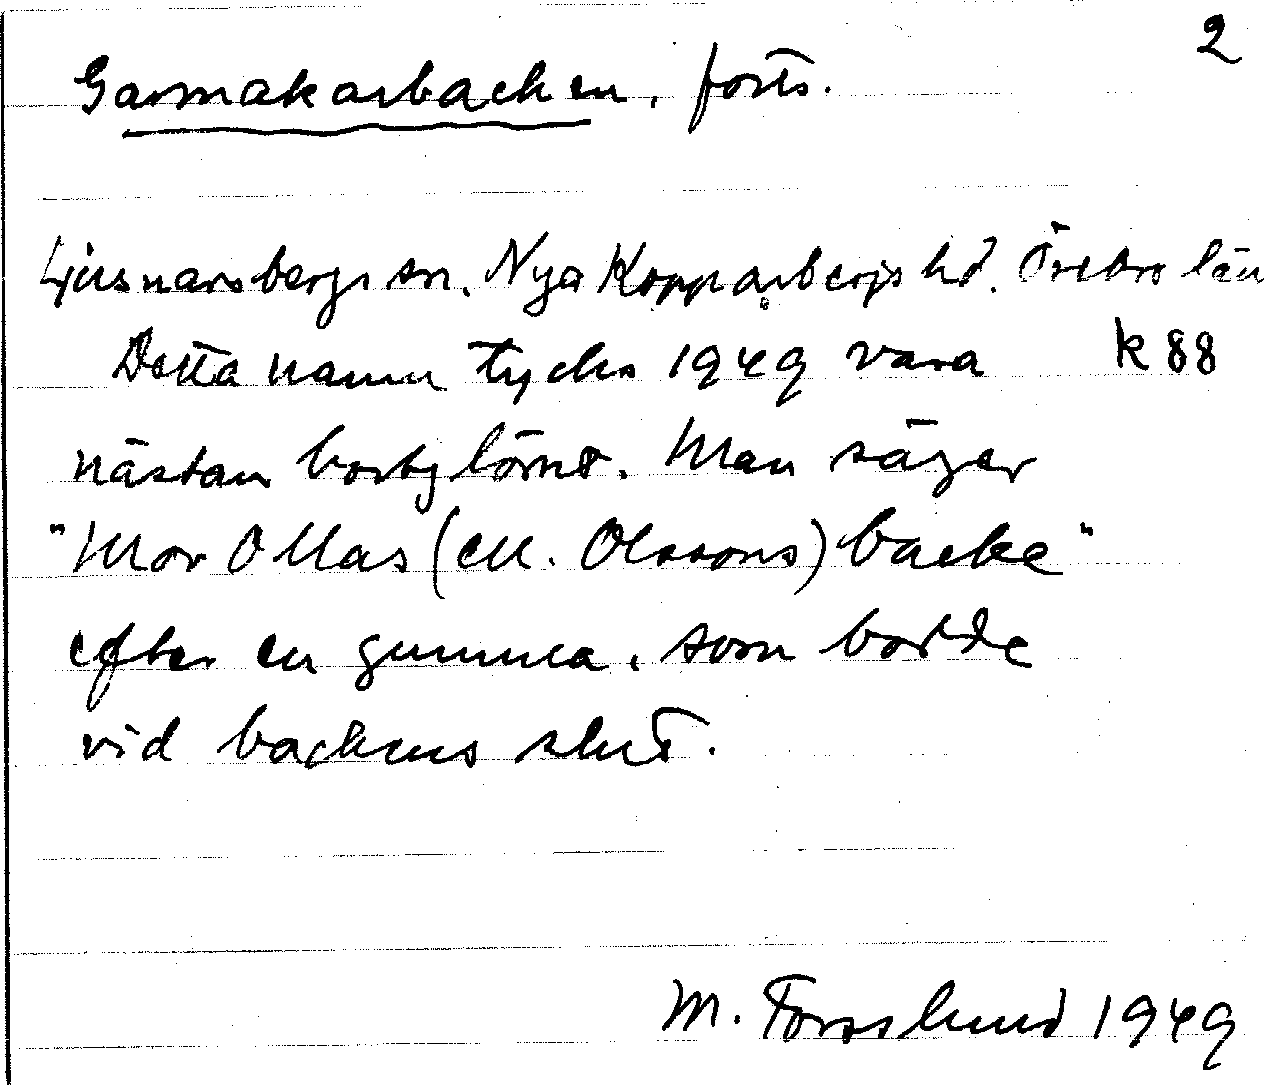 2
Garmakarbacken, forts.
Ljusnarsbergs sn. Nya Kopparbergs hd. Örebro län
Detta namn tycks 1949 vara k 88
nästan bortglömt. Man säger
"Mor Ollas (el. Olssons) backe"
efter en gumma, som bodde
vid backens slut.
M. Forsslund 1949